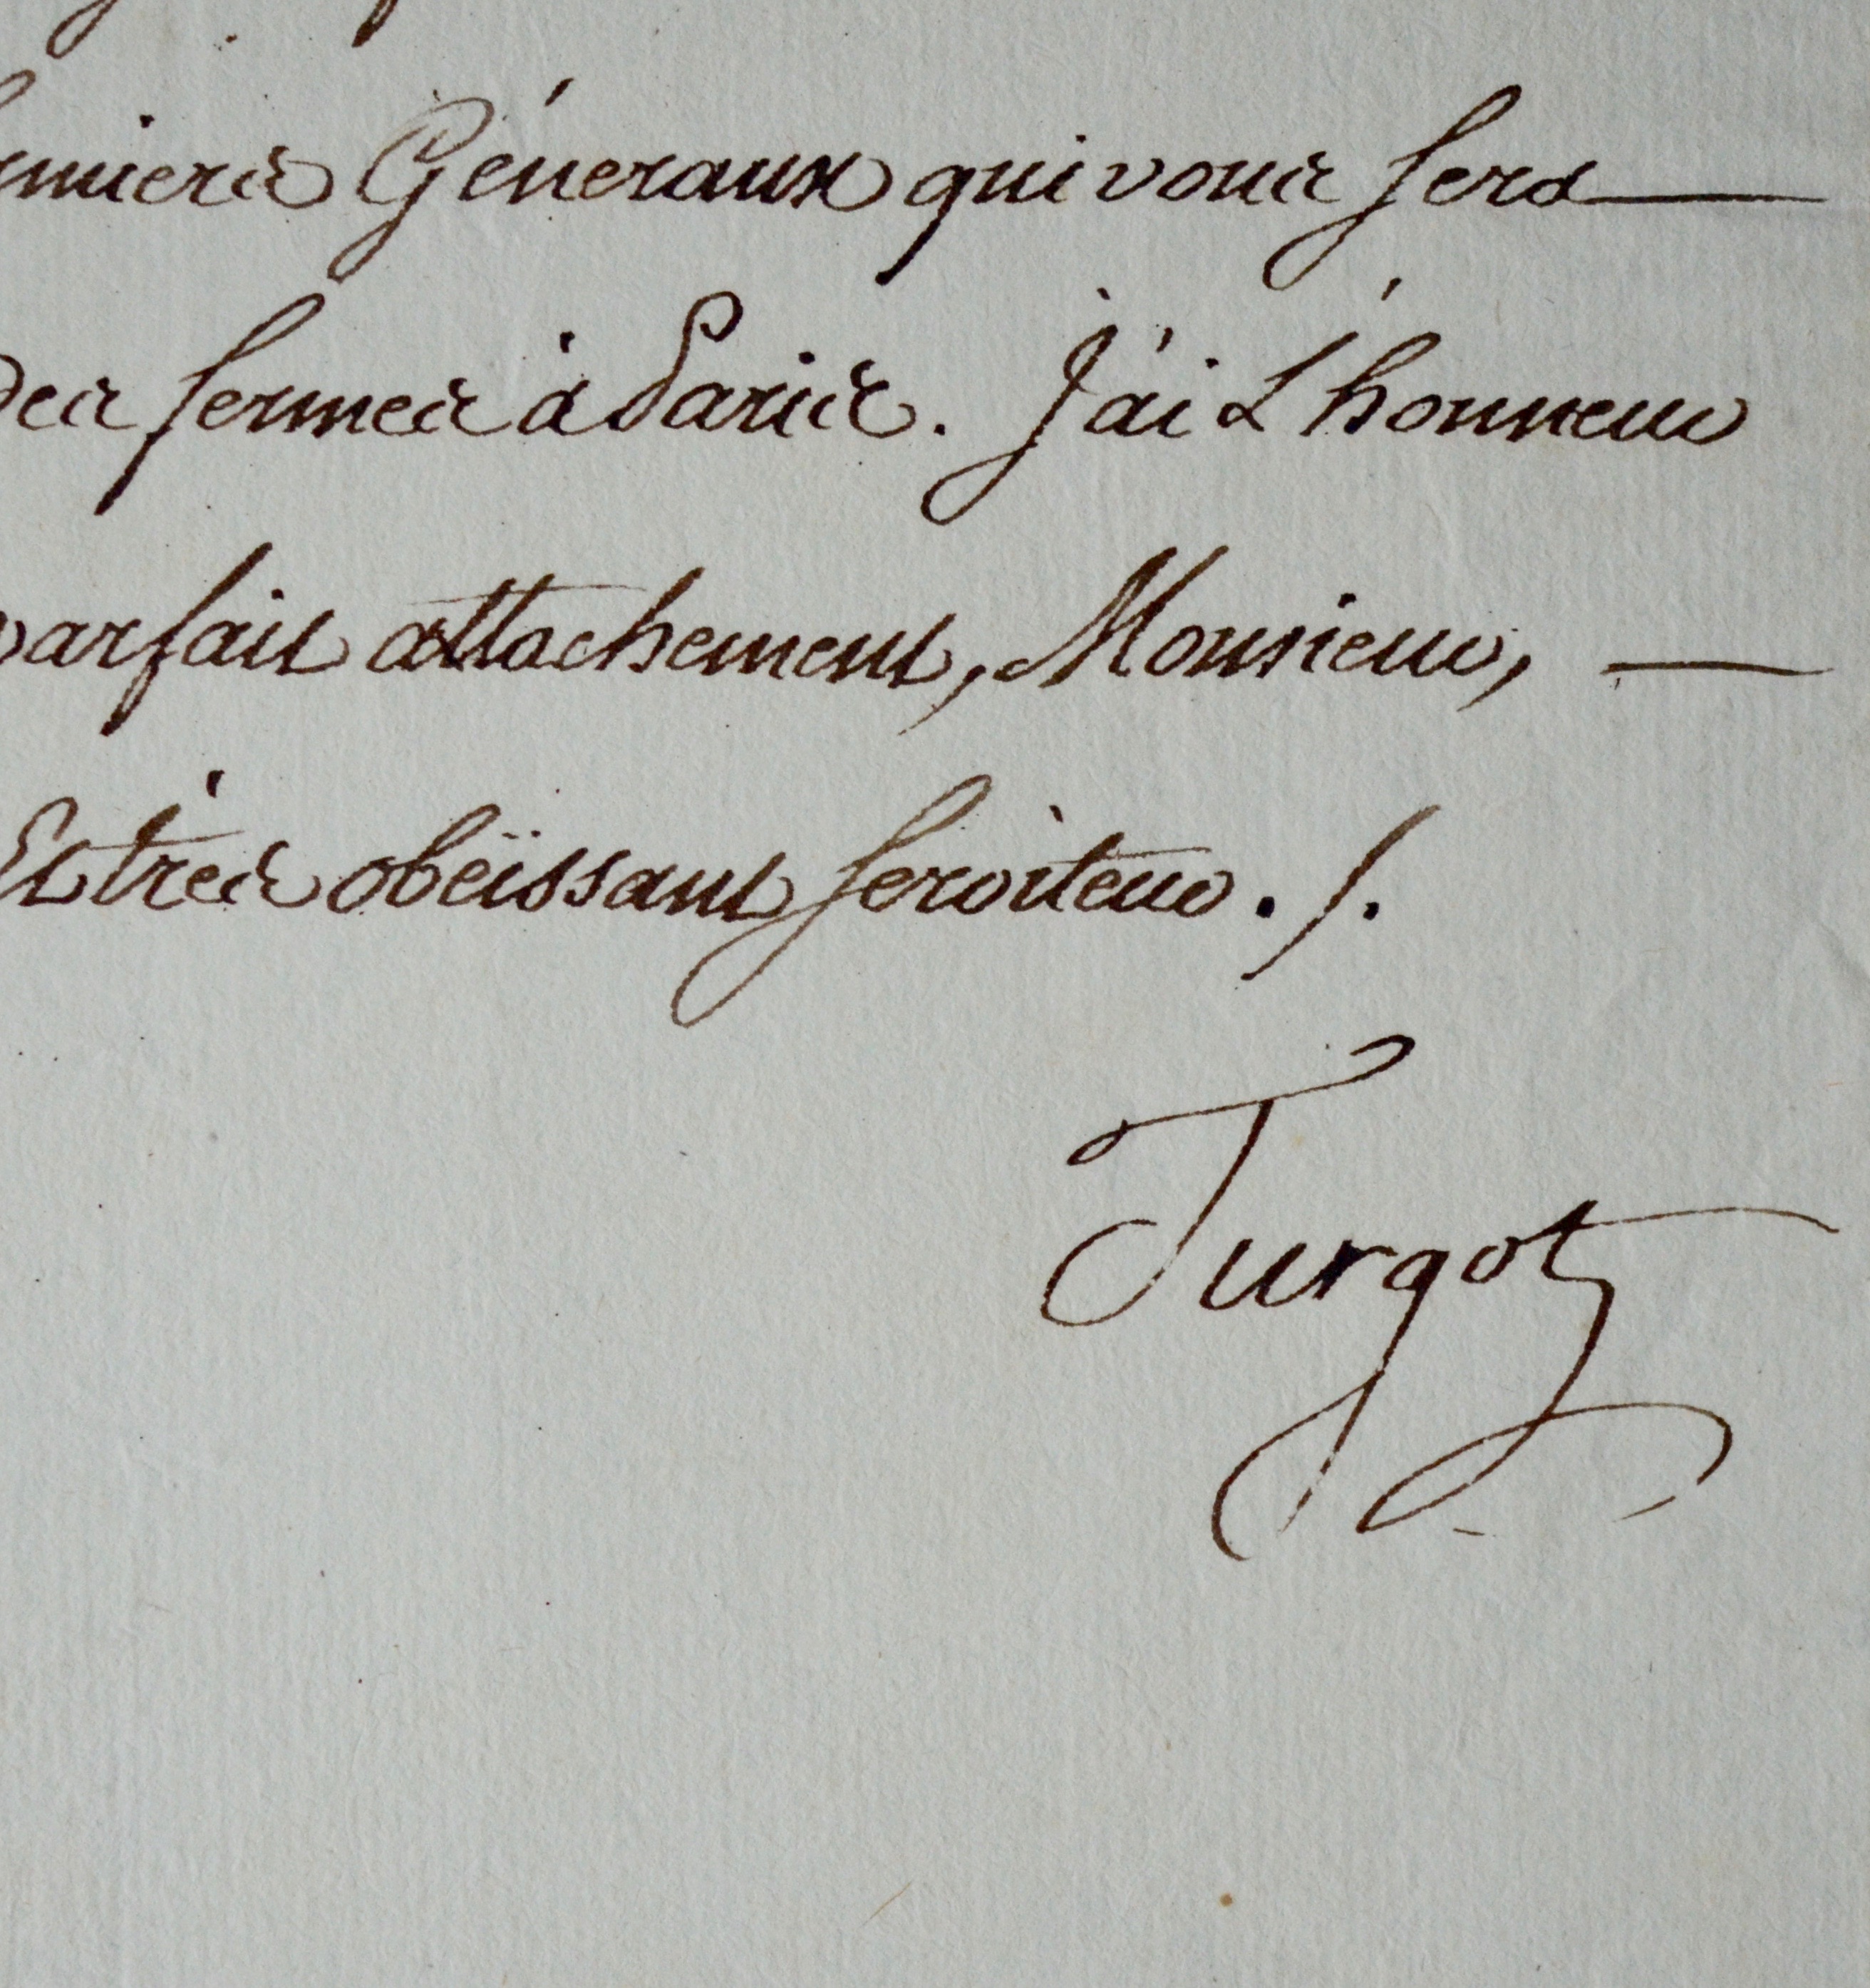 rmiers Géneraux qui vous sera
des fermes à Paris. J'ai L'honneur
parfait attachement, Monsieur,
Et très obéissant serviteur ./.
Turgot